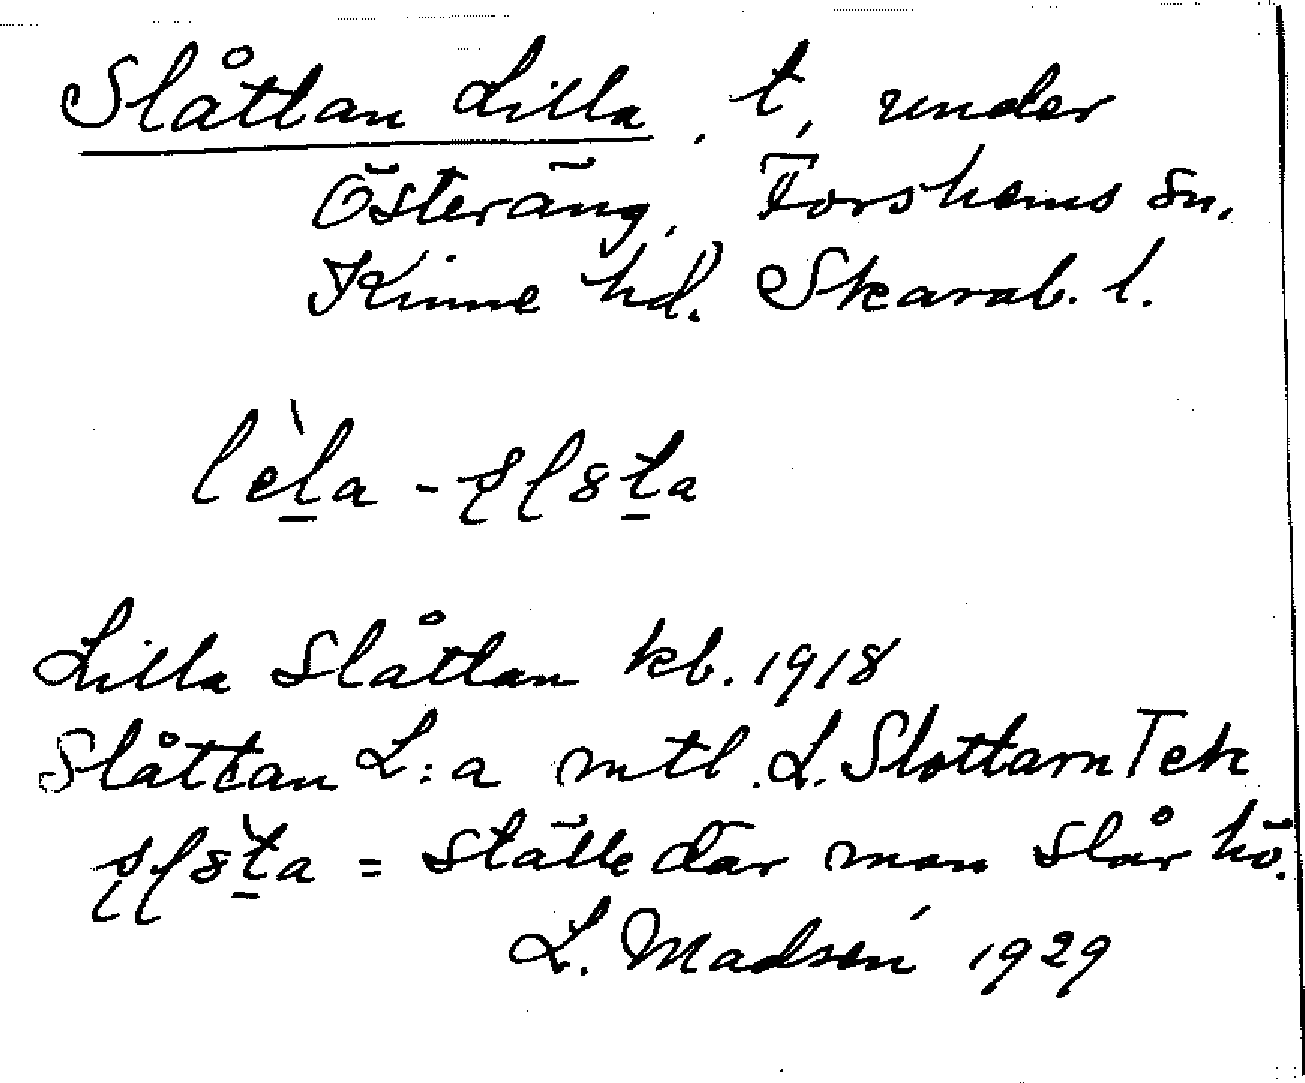 Slåttan Lilla, t, under
Österäng, Forshems sn,
Kinne hd. Skarab. l.
lèla -
Lilla Slåttan kb. 1918
Slåttan L:a mtl. L. Slottarn Tek
= ställe där man slår hö.
L. Madsén 1929